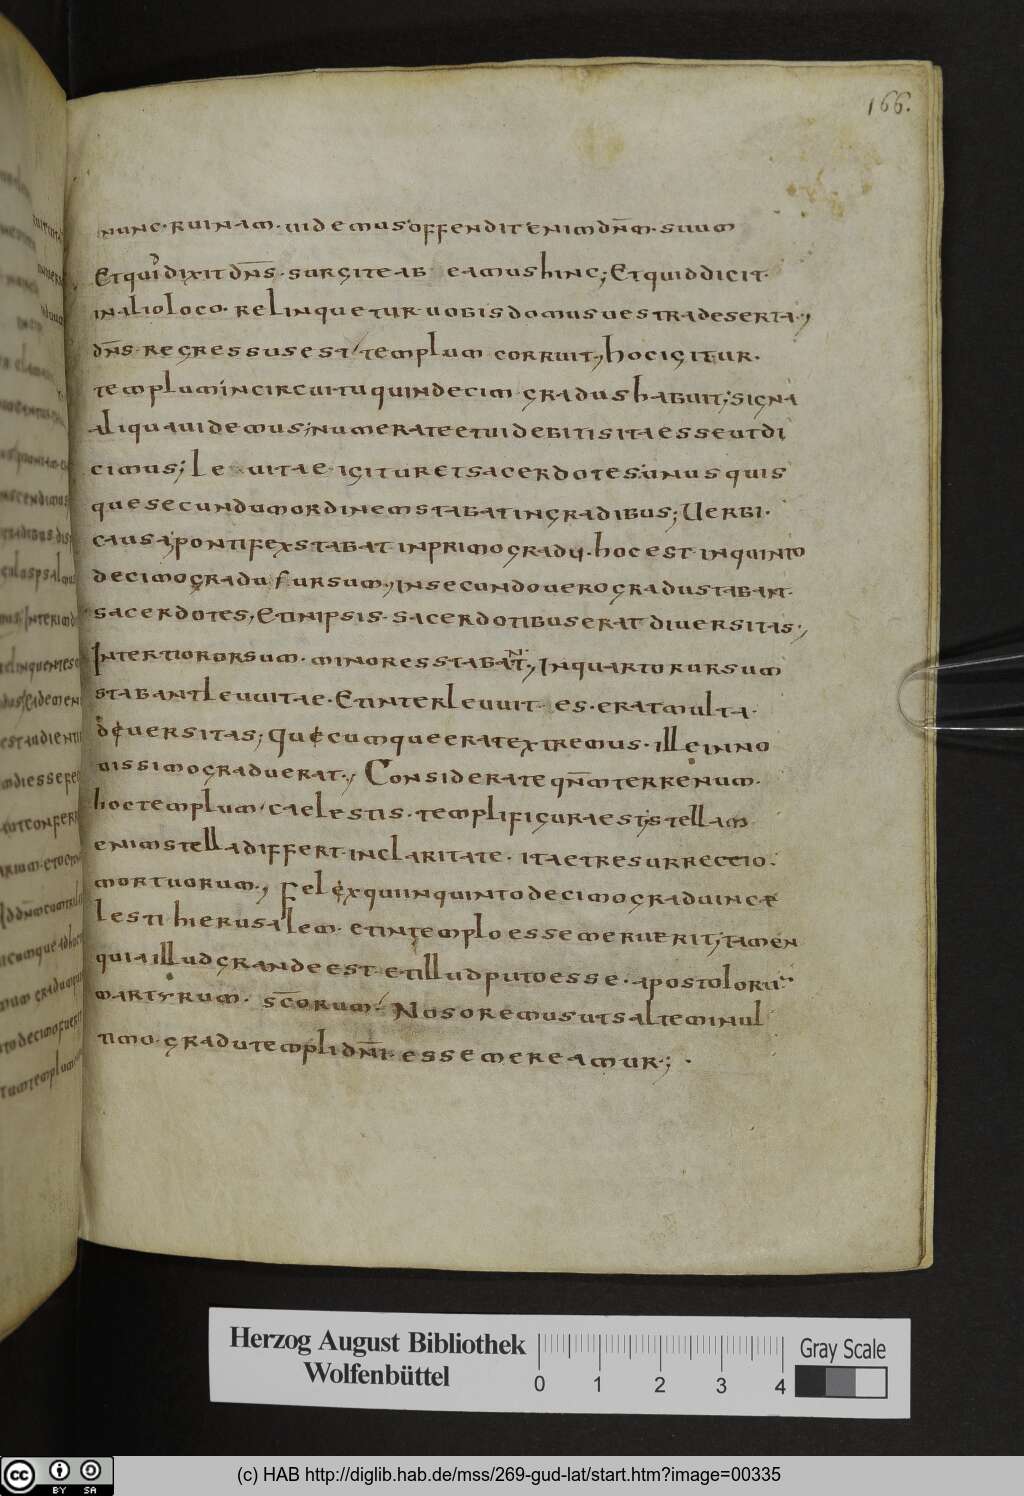 166.
nunc· ruinam· uidemus offendit enim dñm· suum
et qui dixit dñs· surgite ab eamus hinc; Et quid dicit·
in alio loco· relinquetur uobis domus uestra deserta·,
dñs· regressus est templum corruit·, hoc igitur·
templum in circuitu quindecim gradus habuit; signa
aliqua uidemus; numerate et uidebitis ita esse ut di
cimus; le uitae igitur et sacerdotes· unus quis
que secundum ordinem stabat in gradibus; Uerbi·
causa; pontifex stabat in primo gradu· hoc est in quinto
decimo gradu sursum·, in secundo uero gradu stabant·
sacerdotes; Et in ipsis· sacerdotibus erat diuersitas·,
Intertio rorsum· minores stabant·, In quarto rursum
stabant leuuitae· Et inter leuuit es· erat multa·
deuersitas; Quecumque erat extremus· ille in no
uissimo gradu erat·, Considerate qñm terrenum·
hoc templum· caelestis· templi figura est; stellam
enim stella differt· in claritate· ita et resurrectio·
mortuorum·, Felęx qui in quinto decimo gradu in cę
lesti hierusalem· et in templo esse meruerit; tamen
quia illud grande est· et illud puto esse· apostolorū·
martyrum· scorum· Nos oremus ut saltem in ul
timo· gradu templi dñi· esse mereamur;·
Herzog August Bibliothek
Wolfenbüttel
0 1 2 3 4
Gray Scale
cc BY SA
(c) HAB http://diglib.hab.de/mss/269-gud-lat/start.htm?image=00335